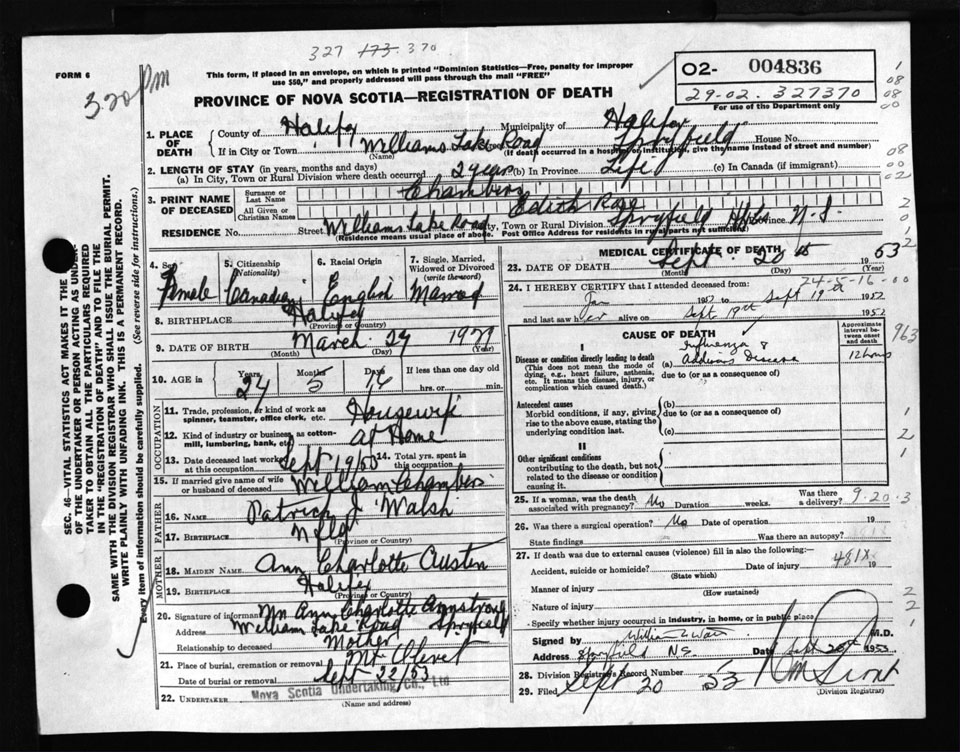 327 173 370
FORM 6
3.20 PM
This form, if placed in an envelope, on which is printed "Dominion Statistics—Free, penalty for improper
use $50," and properly addressed will pass through the mail "FREE"
O2- 004836
29-02. 327370
For use of the Department only
PROVINCE OF NOVA SCOTIA—REGISTRATION OF DEATH
1. PLACE OF DEATH
County of Halifax Municipality of Halifax
If in City or Town Williams Lake Road Spryfield House No.
(Name) (If death occurred in a hospital or institution, give the name instead of street and number)
2. LENGTH OF STAY (in years, months and days)
(a) In City, Town or Rural Division where death occurred 2 years (b) In Province Life (c) In Canada (if immigrant)
3. PRINT NAME OF DECEASED
Surname or Last Name Chambers
All Given or Christian Names Edith Rose
RESIDENCE No. Street Williams Lake Road City, Town or Rural Division Spryfield Hfx Province N.S.
(Residence means usual place of abode. Post Office Address for residents in rural parts not sufficient)
4. Sex Female
5. Citizenship (Nationality) Canadian
6. Racial Origin English
7. Single, Married, Widowed or Divorced (write the word) Married
8. BIRTHPLACE Halifax
(Province or Country)
9. DATE OF BIRTH March 29
(Month) (Day) (Year)
10. AGE in Years 24 Months 5 Days If less than one day old
hrs. or min.
OCCUPATION
11. Trade, profession, or kind of work as spinner, teamster, office clerk, etc. Housewife
12. Kind of industry or business, as cotton-mill, lumbering, bank, etc. At Home
13. Date deceased last worked at this occupation Sept 19/53
14. Total years spent in this occupation
15. If married give name of wife or husband of deceased William Chambers
FATHER
16. NAME Patrick J. Walsh
17. BIRTHPLACE Nfld
(Province or Country)
MOTHER
18. MAIDEN NAME Ann Charlotte Austen
19. BIRTHPLACE Halifax
(Province or Country)
20. Signature of informant Mrs Ann Charlotte Armstrong
Address William Lake Road Spryfield
Relationship to deceased Mother
21. Place of burial, cremation or removal Mt Olivet
Date of burial or removal Sept 22/53
22. UNDERTAKER Nova Scotia Undertaking Co., Ltd
(Name and address)
MEDICAL CERTIFICATE OF DEATH
23. DATE OF DEATH Sept. 20th 1953
(Month) (Day) (Year)
24. I HEREBY CERTIFY that I attended deceased from: 24-5-16-00
Jan 1952 to Sept 19th 1952
and last saw her alive on Sept 19th 1952
CAUSE OF DEATH
Approximate interval between onset and death
I
Disease or condition directly leading to death
(This does not mean the mode of dying, e.g., heart failure, asthenia, etc. It means the disease, injury, or complication which caused death.)
(a) Influenza & Addisons Disease 12 hours
due to (or as a consequence of)
Antecedent causes
Morbid conditions, if any, giving rise to the above cause, stating the underlying condition last.
(b)
due to (or as a consequence of)
(c)
II
Other significant conditions
contributing to the death, but not related to the disease or condition causing it.
25. If a woman, was the death associated with pregnancy? No Duration weeks. Was there a delivery? 9-20-3
26. Was there a surgical operation? No Date of operation 19
State findings Was there an autopsy?
27. If death was due to external causes (violence) fill in also the following:
Accident, suicide or homicide? Date of injury 481X 19
(State which)
Manner of injury
(How sustained)
Nature of injury
Specify whether injury occurred in industry, in home, or in public place
Signed by M.D.
Address Spryfield N.S. Date Sept 20th 1953
28. Division Registrar's Record Number
29. Filed Sept 20 53
(Division Registrar)
SEC. 46—VITAL STATISTICS ACT MAKES IT THE DUTY
OF THE UNDERTAKER OR PERSON ACTING AS UNDER-
TAKER TO OBTAIN ALL THE PARTICULARS REQUIRED
IN THE "REGISTRATION OF DEATH" AND TO FILE THE
SAME WITH THE DIVISION REGISTRAR WHO SHALL ISSUE THE BURIAL PERMIT.
WRITE PLAINLY WITH UNFADING INK. THIS IS A PERMANENT RECORD.
Every item of information should be carefully supplied. (See reverse side for instructions.)